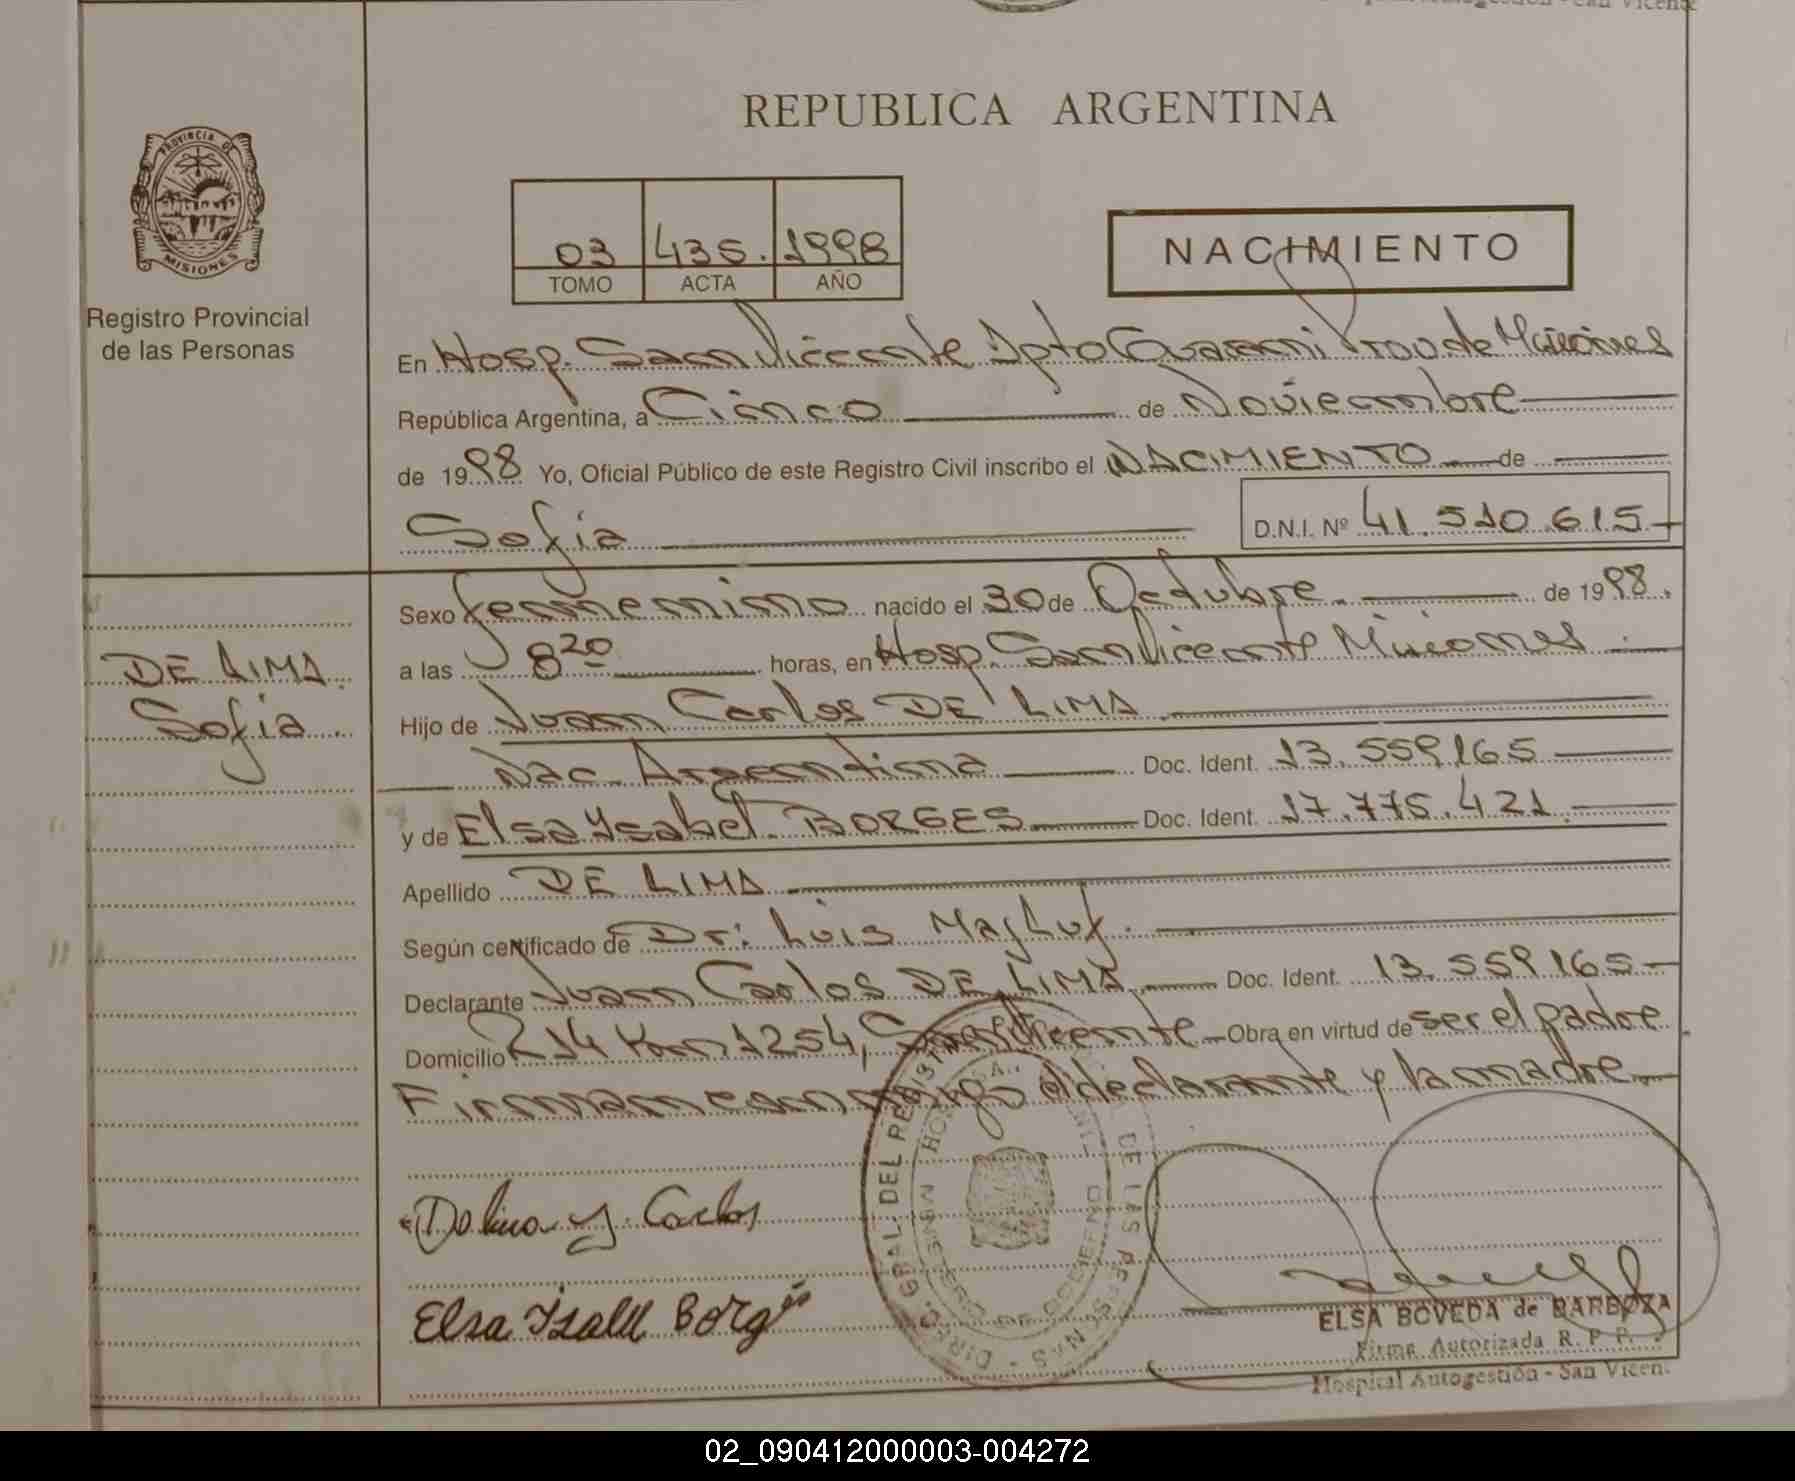 REPUBLICA ARGENTINA
PROVINCIA DE
MISIONES
Registro Provincial
de las Personas
03 435. 1998
TOMO ACTA AÑO
NACIMIENTO
En Hosp. San Vicente Dpto Guarani Prov. de Misiones
República Argentina, a Cinco de Noviembre
de 1998 Yo, Oficial Público de este Registro Civil inscribo el NACIMIENTO de
Sofia D.N.I. Nº 41.510.615
DE LIMA
Sofia
Sexo femenino nacido el 30 de Octubre. de 1998.
a las 8 20 horas, en Hosp. San Vicente Misiones
Hijo de Juan Carlos DE LIMA
Nac. Argentina Doc. Ident. 13.559.165
y de Elsa Ysabel BORGES Doc. Ident. 17.775.421
Apellido DE LIMA
Según certificado de Dr: Luis Majluf.
Declarante Juan Carlos DE LIMA Doc. Ident. 13.559.165
Domicilio R 14 Km 1254, San Vicente Obra en virtud de ser el padre
Firman conmigo el declarante y la madre
J. Carlos
Elsa Isabel Borges
ELSA BOVEDA de BARBOZA
Firma Autorizada R. P. P.
Hospital Autogestión - San Vicen
02_090412000003-004272